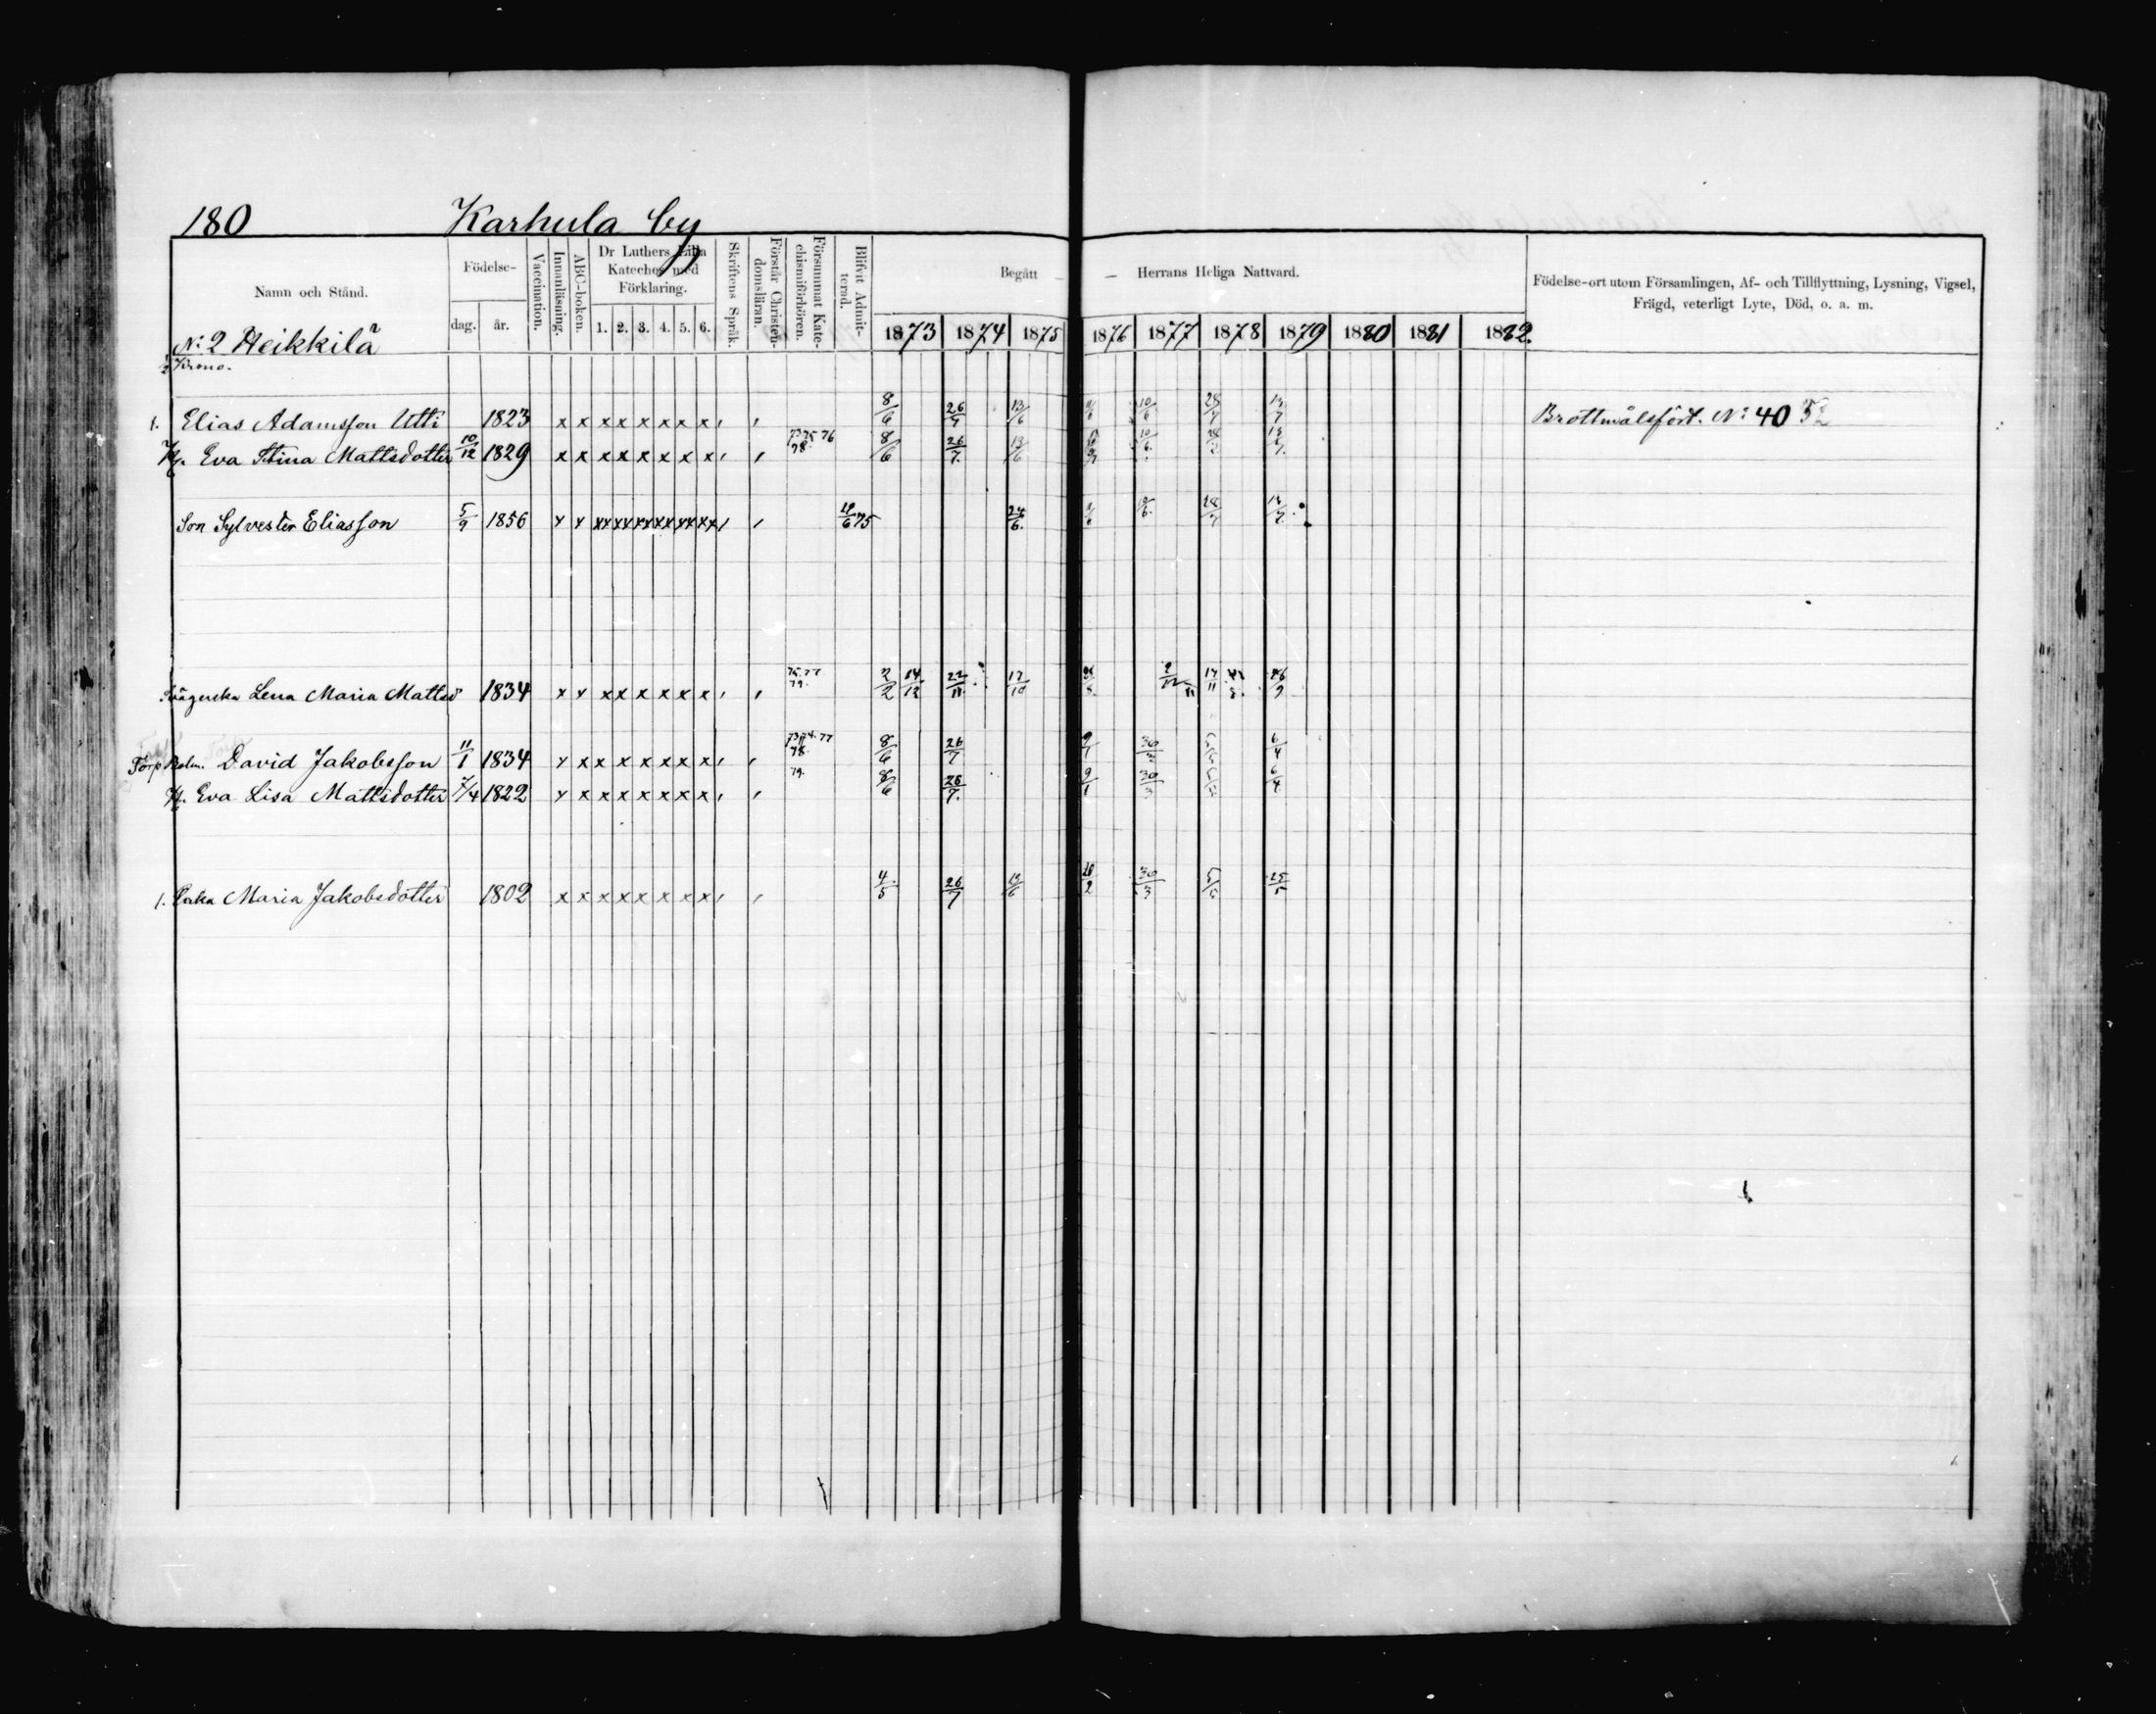 180 Karhula by
Namn och Stånd.
Födelse-
dag. år.
Vaccination.
Innanläsning.
ABC-boken.
Dr Luthers Lilla
Kateches med
Förklaring.
1. 2. 3. 4. 5. 6.
Skriftens Språk.
Förstår Christen-
domsläran.
Försummat Kate-
chismiförhören.
Blifvit Admit-
terad.
Begått — — Herrans Heliga Nattvard.
1873 1874 1875 1876 1877 1878 1879 1880 1881 1882.
Födelse-ort utom Församlingen, Af- och Tillflyttning, Lysning, Vigsel,
Frägd, veterligt Lyte, Död, o. a. m.
No: 2 Heikkilä
1. Elias Adamsson Utti 1823 x x x x x x x x 8/6 26/7 13/6 10/6 28/7 13/7 Brottmålsfört. No: 40 52
H. Eva Stina Mattsdotter 10/12 1829 x x x x x x x x 73 75 76 78 8/6 26/7. 13/6 10/6 28/7 13/7.
Son Sylvester Eliasson 5/9 1856 x x xx xx xx xx xx xx 75 24/6. 28/7 13/7.
Lena Maria Mattsd 1834 x x x x x x x x 75. 77 79. 2/2 14/12 22/11 17/10 17/11
Torp David Jakobsson 11/1 1834 x x x x x x x x 73 74 77 78 8/6 26/7 9/1 30/3 6/4
H. Eva Lisa Mattsdotter 1822 x x x x x x x x 79. 8/6 26/7. 9/1 30/3 6/4
1. Enka Maria Jakobsdotter 1802 x x x x x x x x 4/5 26/7 13/6 20/2 30/3 25/5